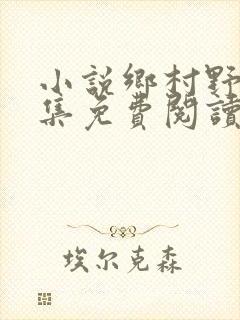 小説鄉村野
集免費閱讀
埃尔克森